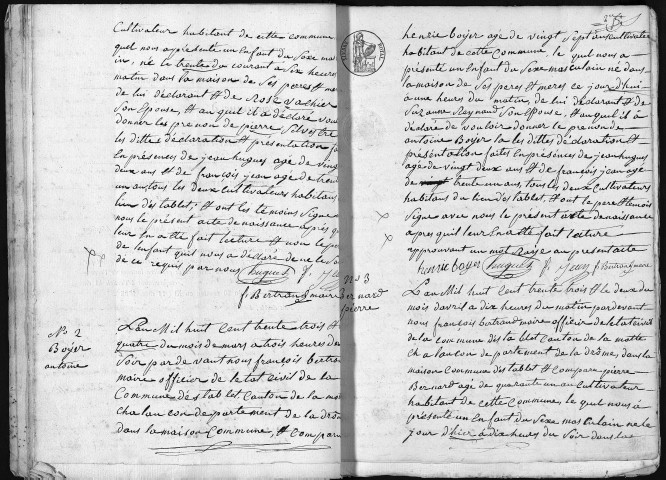 Cultivateur habitant de cette commune
quel nous a présenté un Enfant du Sexe mas
in, né le trente du courant a Six heures
matin dans la maison de Ses peres Et m
de lui déclarant Et de Rose vachier
Son Epouse, Et auquel il à déclaré vou
donner les prenon de pierre Silvestre
les ditte déclaration Et présentation fai
En présences de jean hugues agé de vingt
deux ans Et de françois jean agé de trente
un ans tous les deux Cultivateurs habitans
lieu dés tablet, Et ont les témoins Signé
nous le présent acte de naissance après qu
leur En a été fait lecture Et nous le p
de Enfant quel nous a déclaré de ne le S
de ce requis par nous hugues f. Je
f Bertrand maire
No 2
Boyer
antoine
L'an Mil huit Cent trente trois Et
quatre du mois de mars a trois heures de
Soir par de vant nous françois bertran
maire officier de letat Civil de la
Commune dés tablet Canton de la mot
chalancon departement de la drôm
dans la maison Commune, Et Compara
henrie boyer agé de vingt Sept ans Cultivateur
habitant de cette Commune, le quel nous a
présenté un Enfant du Sexe masculain né dans
la maison de Ses peres Et meres ce jour d'hui
a une heures du matin, de lui déclarant Et de
Suzanne Reynaud Son Epouse, Et auquel il à
déclaré de vouloir donner le prenon de
antoine Boyer la les dittes déclaration Et
présentation faites En présences de jean hugues
agé de vingt deux ans Et de françois jean agé
de trente un ans, tous les deux Cultivateurs
habitans du lieu dés tablet, Et ont le pere Et temoins
Signé avec nous le présent acte de naissance
après quil leur En a été fait lecture
approuvant un mot Rayé au présent acte
henrie boyer hugues f. Jean f Bertrand maire
No 3
Bernard
pierre
L'an Mil huit Cent trente trois Et le deux du
mois davril a dix heures du matin par devant
nous françois bertrand maire officier de letat Civil
de la Commune dés tablet Canton de la motte
chalancon departement de la drôme, dans la
maison Commune dés tablet Et Comparu pierre
Bernard agé de quarante un an Cultivateur
habitant de cette Commune, le quel nous à
présenté un Enfant du Sexe masculain né le
jour d'hier a dix heures du Soir dans la